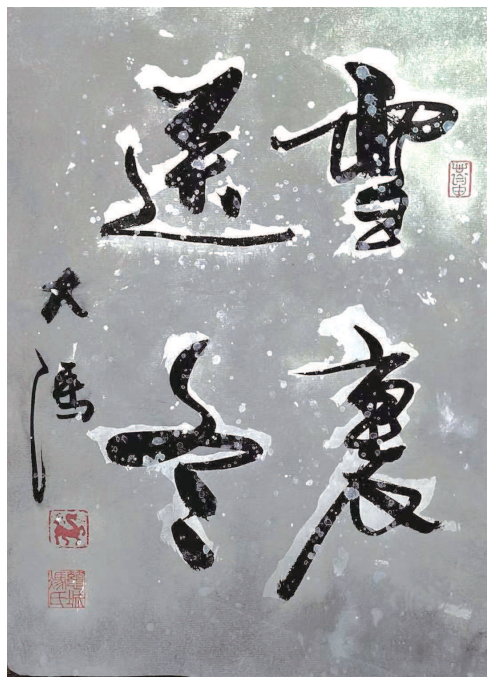 雪裏
送炭
大馮